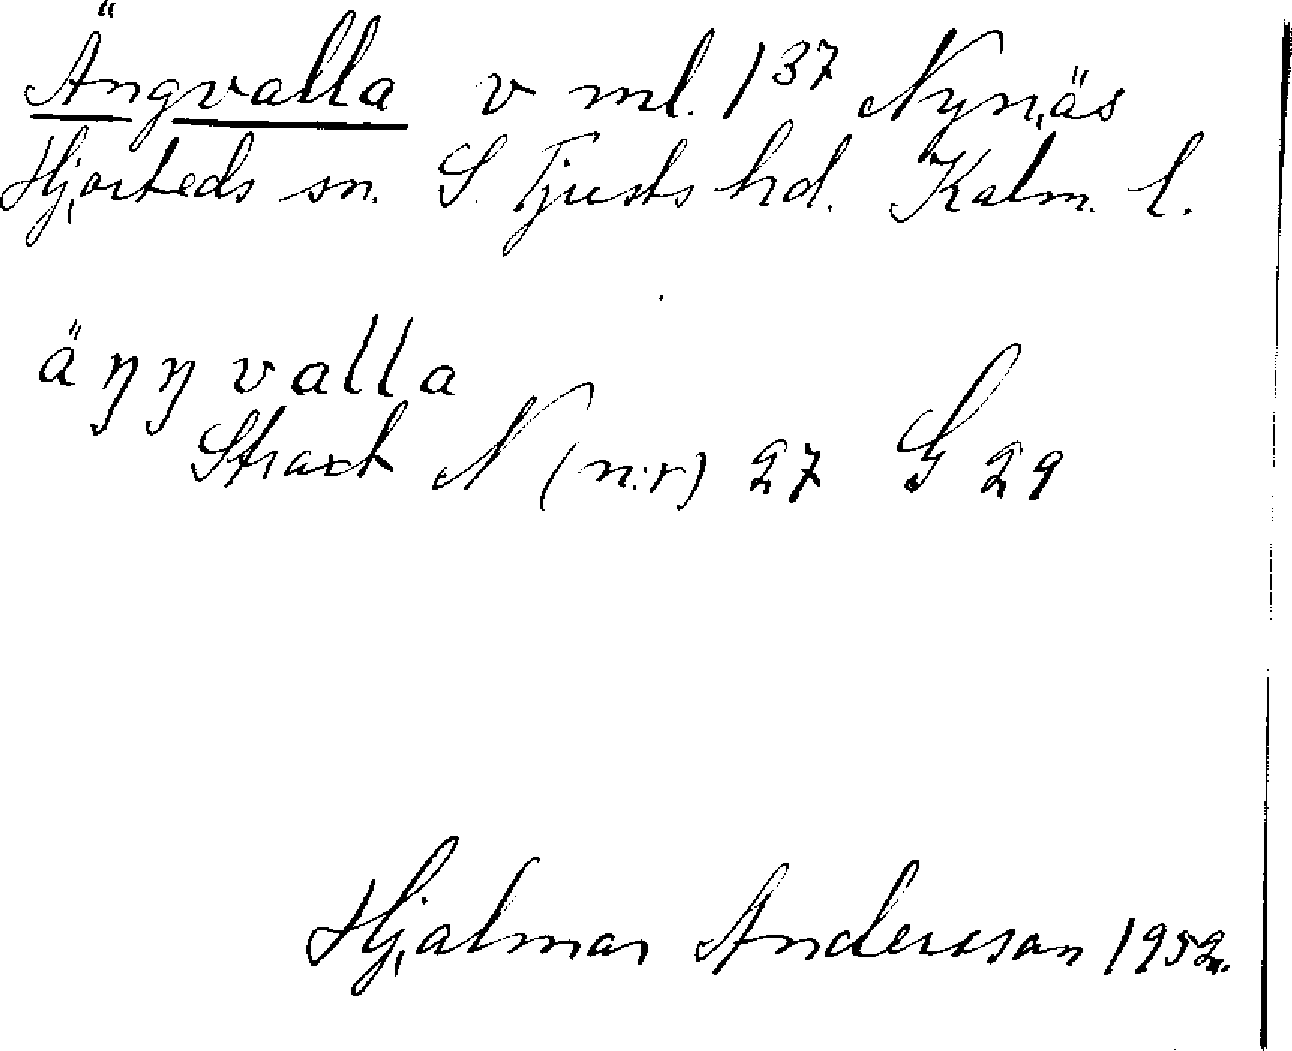 Ängvalla v ml. 1³⁷ Nynäs
Hjorteds sn. S. Tjusts hd. Kalm. l.
äŋŋvalla
Straxt N (n:r) 27 G 29
Hjalmar Andersson 1952.